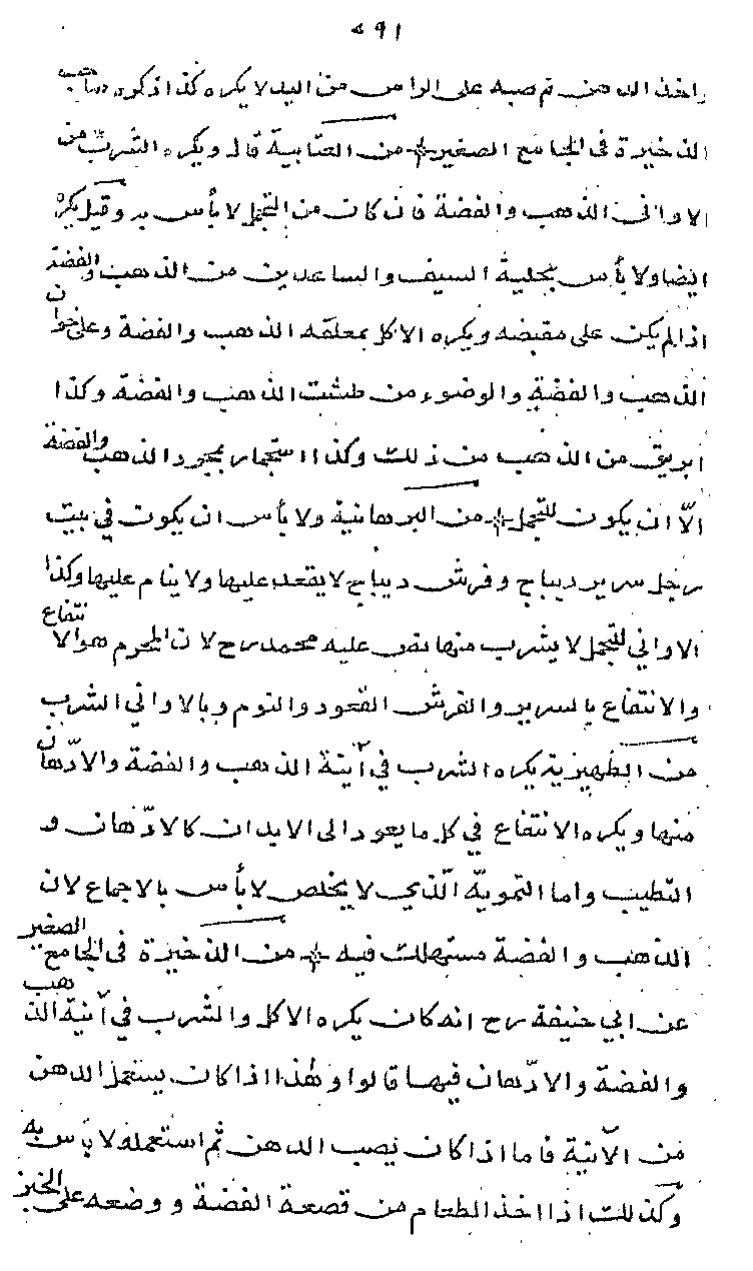 ٥٩١
واخذ الدهن ثم صبه على الراس من اليد لا يكره كذا ذكره صاحب
الذخيرة فى الجامع الصغير من العتابية قال ويكره الشرب من
الاوانى الذهب والفضة فان كان من التجمل لا بأس به وقيل يكره
ايضا ولا بأس بحلية السيف والساعدين من الذهب والفضة
اذا لم يكن على مقبضه ويكره الاكل بمعلقه الذهب والفضة وعلى خوان
الذهب والفضة والوضوء من طشت الذهب والفضة وكذا
ابريق من الذهب من ذلك وكذا الاستجمار بمجرد الذهب والفضة
الّا ان يكون للتجمل من البرهانية ولا بأس ان يكون في بيت
رجل سرير ديباج وفرش ديباج لا يقعد عليها ولا ينام عليها وكذا
الاواني للتجمل لا يشرب منها نص عليه محمد رح لان المحرم هو الانتفاع
والانتفاع بالسرير والفرش القعود والنوم وبالاواني الشرب
من الظهيرية يكره الشرب في آنية الذهب والفضة والادّهان
منها ويكره الانتفاع في كل ما يعود الى الابدان كالادّهان و
التطيب واما التمويه الّذي لا يخلص لا بأس بالاجماع لان
الذهب والفضة مستهلك فيه من الذخيرة فى الجامع الصغير
عن ابي حنيفة رح انه كان يكره الاكل والشرب في آنية الذهب
والفضة والادّهان فيها قالوا وهذا اذا كان يستعمل الدهن
من الآنية فاما اذا كان يصب الدهن ثم استعمله لا بأس به
وكذلك اذا اخذ الطعام من قصعة الفضة ووضعه على الخبز